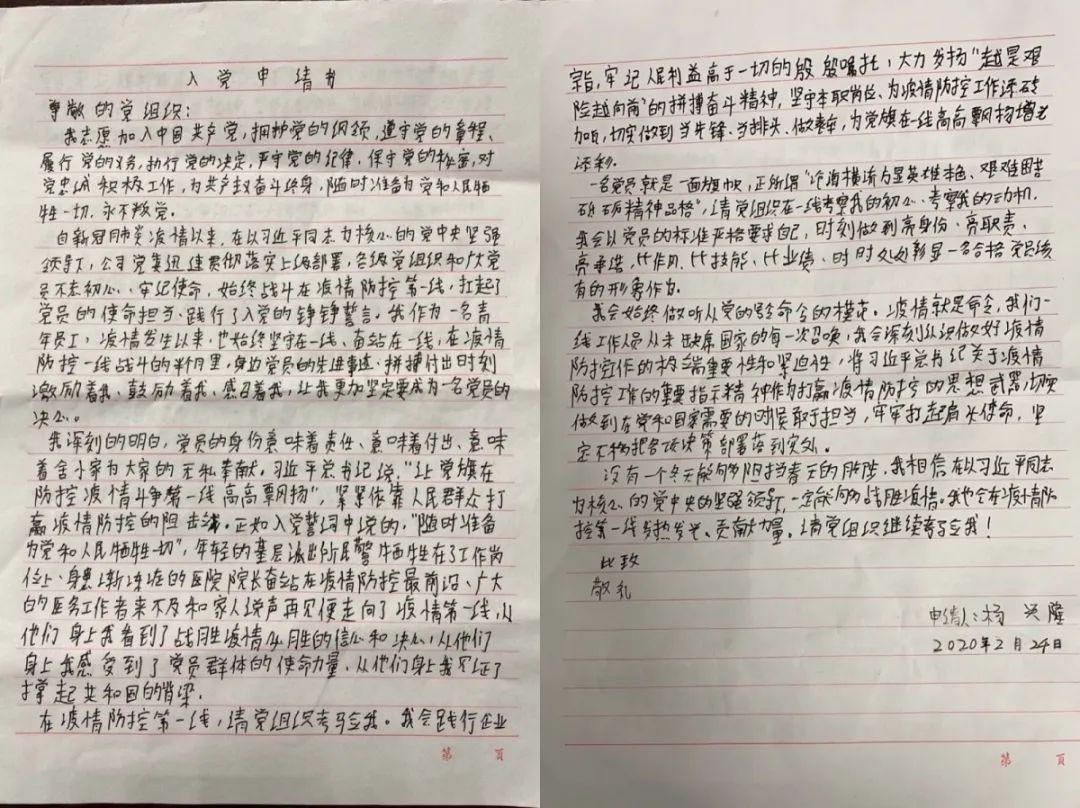 入党申请书
尊敬的党组织：
我志愿加入中国共产党，拥护党的纲领，遵守党的章程、
履行党的义务，执行党的决定，严守党的纪律，保守党的秘密，对
党忠诚，积极工作，为共产主义奋斗终身，随时准备为党和人民牺
牲一切，永不叛党。
自新冠肺炎疫情以来，在以习近平同志为核心的党中央坚强
领导下，公司党委迅速贯彻落实上级部署，各级党组织和广大党
员不忘初心、牢记使命，始终战斗在疫情防控第一线，扛起了
党员的使命担当、践行了入党的铮铮誓言。我作为一名青
年员工，疫情发生以来，也始终坚守在一线、奋站在一线，在疫情
防控一线战斗的半个月里，身边党员的先进事迹、拼搏付出时刻
激励着我、鼓励着我、感召着我，让我更加坚定要成为一名党员的
决心。
我深刻的明白，党员的身份意味着责任、意味着付出、意味
着舍小家为大家的无私奉献。习近平总书记说，“让党旗在
防控疫情斗争第一线高高飘扬”，紧紧依靠人民群众打
赢疫情防控的阻击战。正如入党誓词中说的，“随时准备
为党和人民牺牲一切”，年轻的基层派出所民警牺牲在了工作岗
位上、身患渐冻症的医院院长奋站在疫情防控最前沿、广大
的医务工作者来不及和家人说声再见便走向了疫情第一线，从
他们身上我看到了战胜疫情必胜的信心和决心，从他们
身上我感受到了党员群体的使命力量，从他们身上我见证了
撑起共和国的脊梁。
在疫情防控第一线，请党组织考验我。我会践行企业
宗旨，牢记人民利益高于一切的殷殷嘱托，大力发扬“越是艰
险越向前”的拼搏奋斗精神，坚守本职岗位、为疫情防控工作添砖
加瓦，切实做到当先锋、当排头、做表率，为党旗在一线高高飘扬增光
添彩。
一名党员就是一面旗帜，正所谓“沧海横流方显英雄本色、艰难困苦
砥砺精神品格”，请党组织在一线考察我的初心、考察我的动机。
我会以党员的标准严格要求自己，时刻做到亮身份、亮职责、
亮承诺，比作用、比技能、比业绩，时时处处彰显一名合格党员该
有的形象作为。
我会始终做听从党的号令命令的模范。疫情就是命令，我们一
线工作人员从未缺席国家的每一次召唤，我会深刻认识做好疫情
防控工作的极端重要性和紧迫性，将习近平总书记关于疫情
防控工作的重要指示精神作为打赢疫情防控的思想武器，切实
做到在党和国家需要的时候敢于担当，牢牢扛起肩头使命，坚
定不移把各项决策部署落到实处。
没有一个冬天能够阻挡春天的脚步，我相信在以习近平同志
为核心的党中央的坚强领导下，一定能够战胜疫情。我也会在疫情防
控第一线发热发光、贡献力量。请党组织继续考验我！
此致
敬礼
申请人：杨兴隆
2020年2月24日
第 页
第 页